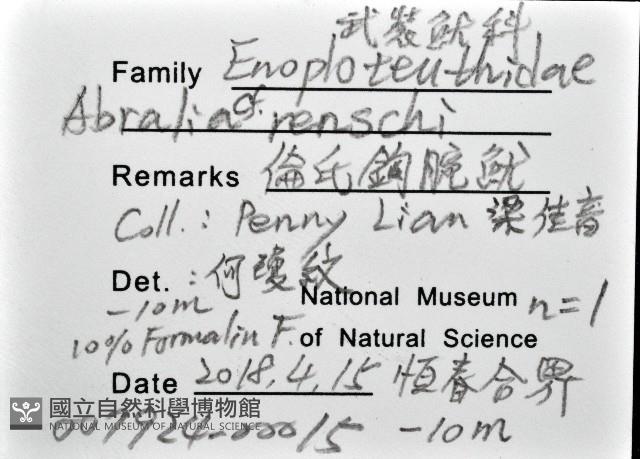 武裝魷科
Family Enoploteuthidae
Abralia cf. renschi
Remarks 倫氏鉤腕魷
Coll.: Penny Lian 梁佳音
Det. : 何瓊紋
-10m National Museum n=1
10% Formalin F. of Natural Science
Date 2018.4.15 恒春合界
國立自然科學博物館
NATIONAL MUSEUM OF NATURAL SCIENCE
-10m